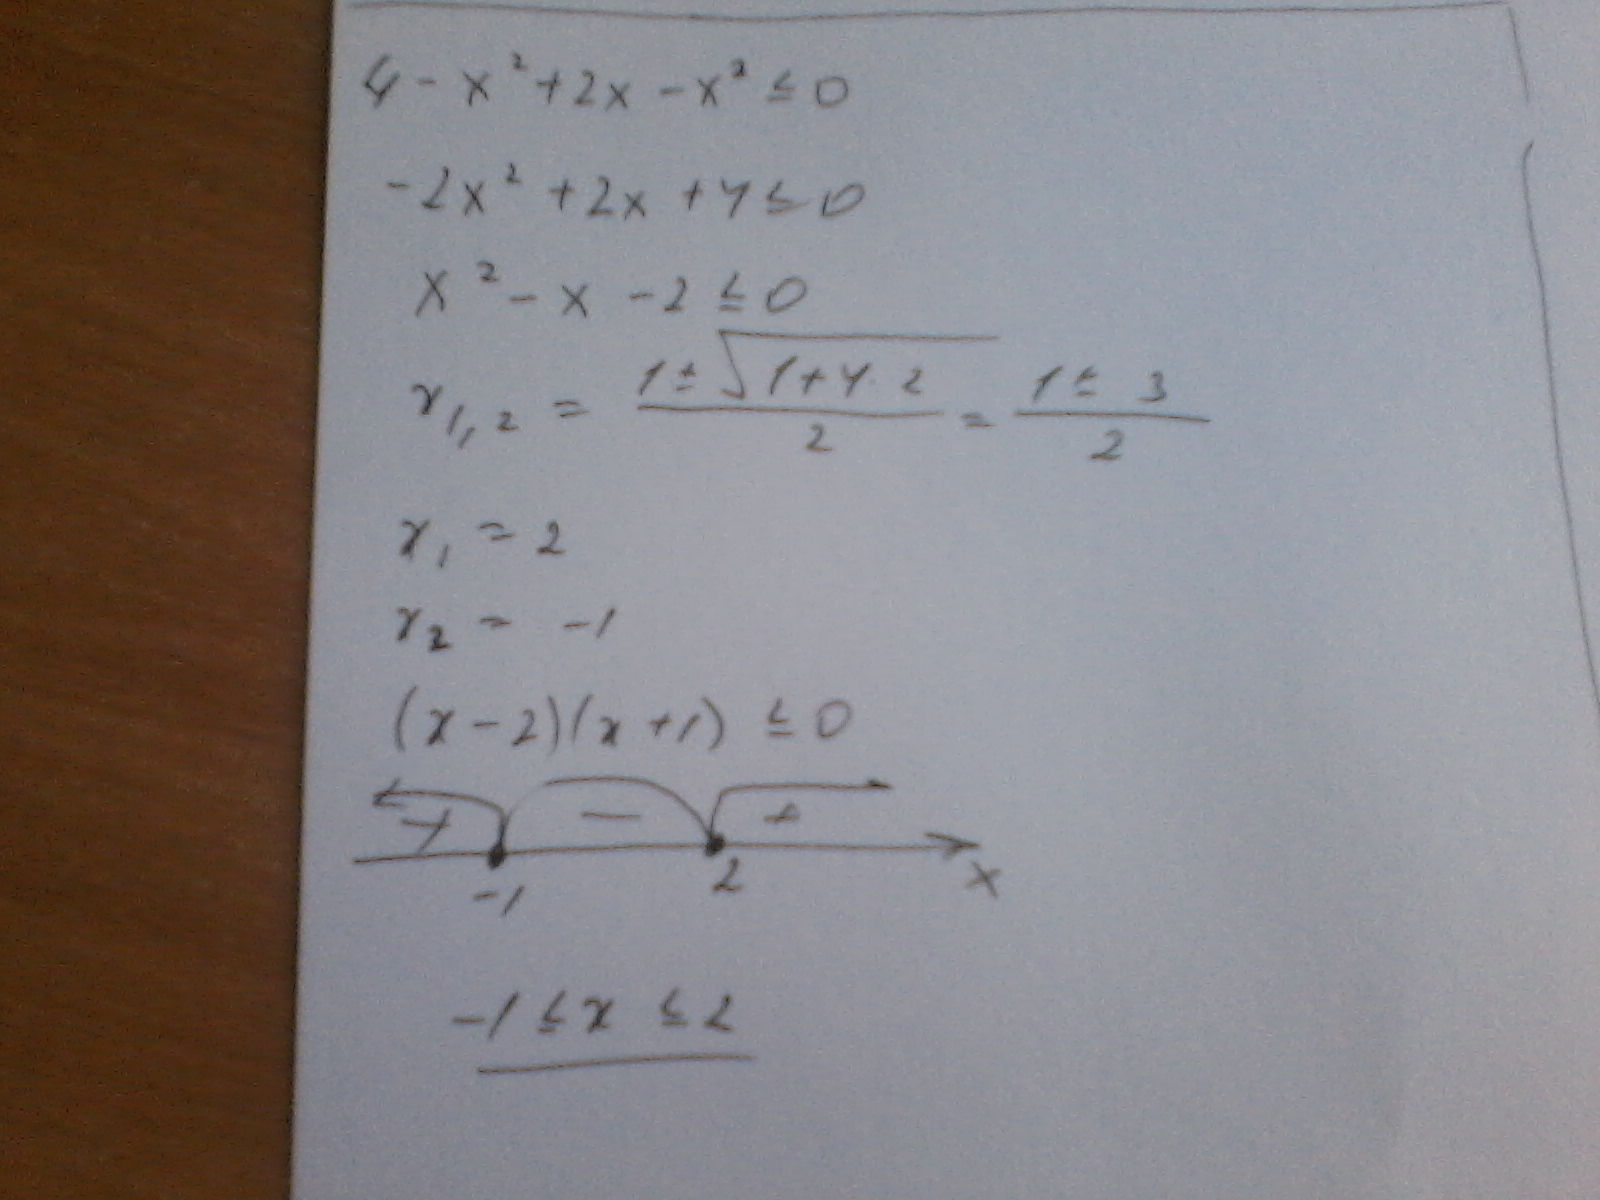 4 - x² + 2x - x² ≤ 0
-2x² + 2x + 4 ≤ 0
x² - x - 2 ≤ 0
x₁,₂ = (1 ± √(1+4·2))/2 = (1 ± 3)/2
x₁ = 2
x₂ = -1
(x-2)(x+1) ≤ 0
+ − +
-1 2 x
-1 ≤ x ≤ 2